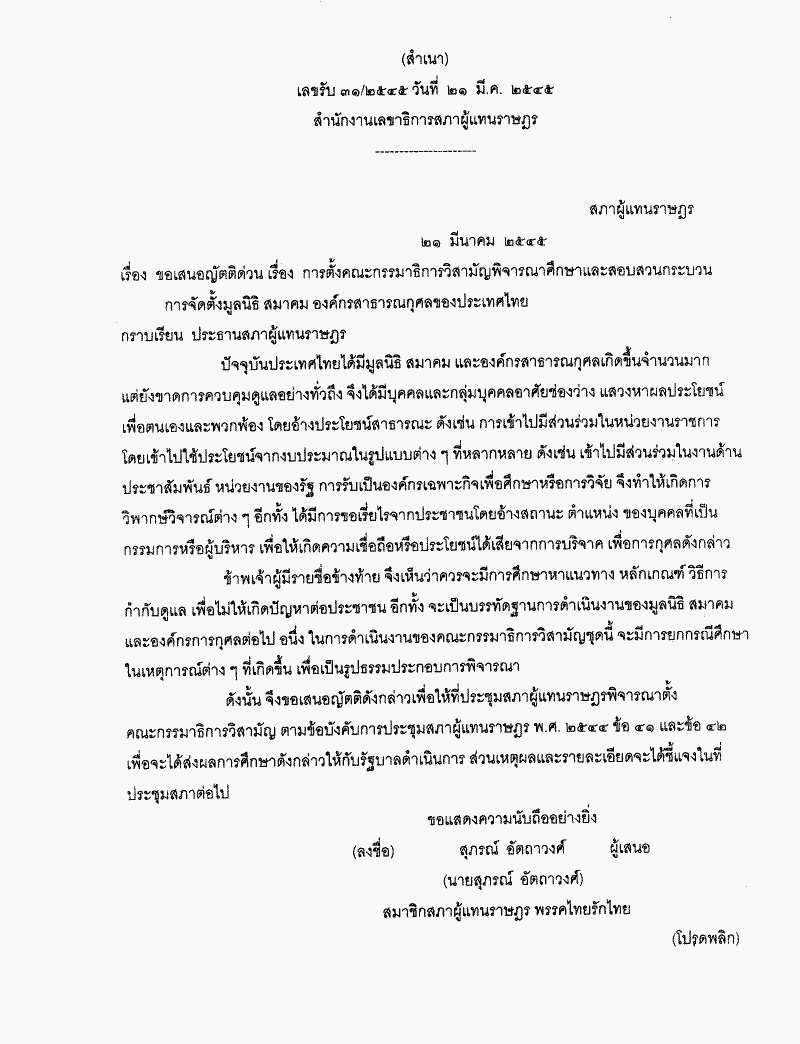 (สำเนา)
เลขรับ ๓๑/๒๕๔๕ วันที่ ๒๑ มี.ค. ๒๕๔๕
สำนักงานเลขาธิการสภาผู้แทนราษฎร
---------------------
สภาผู้แทนราษฎร
๒๑ มีนาคม ๒๕๔๕
เรื่อง ขอเสนอญัตติด่วน เรื่อง การตั้งคณะกรรมาธิการวิสามัญพิจารณาศึกษาและสอบสวนกระบวน
การจัดตั้งมูลนิธิ สมาคม องค์กรสาธารณกุศลของประเทศไทย
กราบเรียน ประธานสภาผู้แทนราษฎร
ปัจจุบันประเทศไทยได้มีมูลนิธิ สมาคม และองค์กรสาธารณกุศลเกิดขึ้นจำนวนมาก
แต่ยังขาดการควบคุมดูแลอย่างทั่วถึง จึงได้มีบุคคลและกลุ่มบุคคลอาศัยช่องว่าง แสวงหาผลประโยชน์
เพื่อตนเองและพวกพ้อง โดยอ้างประโยชน์สาธารณะ ดังเช่น การเข้าไปมีส่วนร่วมในหน่วยงานราชการ
โดยเข้าไปใช้ประโยชน์จากงบประมาณในรูปแบบต่าง ๆ ที่หลากหลาย ดังเช่น เข้าไปมีส่วนร่วมในงานด้าน
ประชาสัมพันธ์ หน่วยงานของรัฐ การรับเป็นองค์กรเฉพาะกิจเพื่อศึกษาหรือการวิจัย จึงทำให้เกิดการ
วิพากษ์วิจารณ์ต่าง ๆ อีกทั้ง ได้มีการขอเรี่ยไรจากประชาชนโดยอ้างสถานะ ตำแหน่ง ของบุคคลที่เป็น
กรรมการหรือผู้บริหาร เพื่อให้เกิดความเชื่อถือหรือประโยชน์ได้เสียจากการบริจาค เพื่อการกุศลดังกล่าว
ข้าพเจ้าผู้มีรายชื่อข้างท้าย จึงเห็นว่าควรจะมีการศึกษาหาแนวทาง หลักเกณฑ์ วิธีการ
กำกับดูแล เพื่อไม่ให้เกิดปัญหาต่อประชาชน อีกทั้ง จะเป็นบรรทัดฐานการดำเนินงานของมูลนิธิ สมาคม
และองค์กรการกุศลต่อไป อนึ่ง ในการดำเนินงานของคณะกรรมาธิการวิสามัญชุดนี้ จะมีการยกกรณีศึกษา
ในเหตุการณ์ต่าง ๆ ที่เกิดขึ้น เพื่อเป็นรูปธรรมประกอบการพิจารณา
ดังนั้น จึงขอเสนอญัตติดังกล่าวเพื่อให้ที่ประชุมสภาผู้แทนราษฎรพิจารณาตั้ง
คณะกรรมาธิการวิสามัญ ตามข้อบังคับการประชุมสภาผู้แทนราษฎร พ.ศ. ๒๕๔๔ ข้อ ๔๑ และข้อ ๔๒
เพื่อจะได้ส่งผลการศึกษาดังกล่าวให้กับรัฐบาลดำเนินการ ส่วนเหตุผลและรายละเอียดจะได้ชี้แจงในที่
ประชุมสภาต่อไป
ขอแสดงความนับถืออย่างยิ่ง
(ลงชื่อ) สุภรณ์ อัตถาวงศ์ ผู้เสนอ
(นายสุภรณ์ อัตถาวงศ์)
สมาชิกสภาผู้แทนราษฎร พรรคไทยรักไทย
(โปรดพลิก)